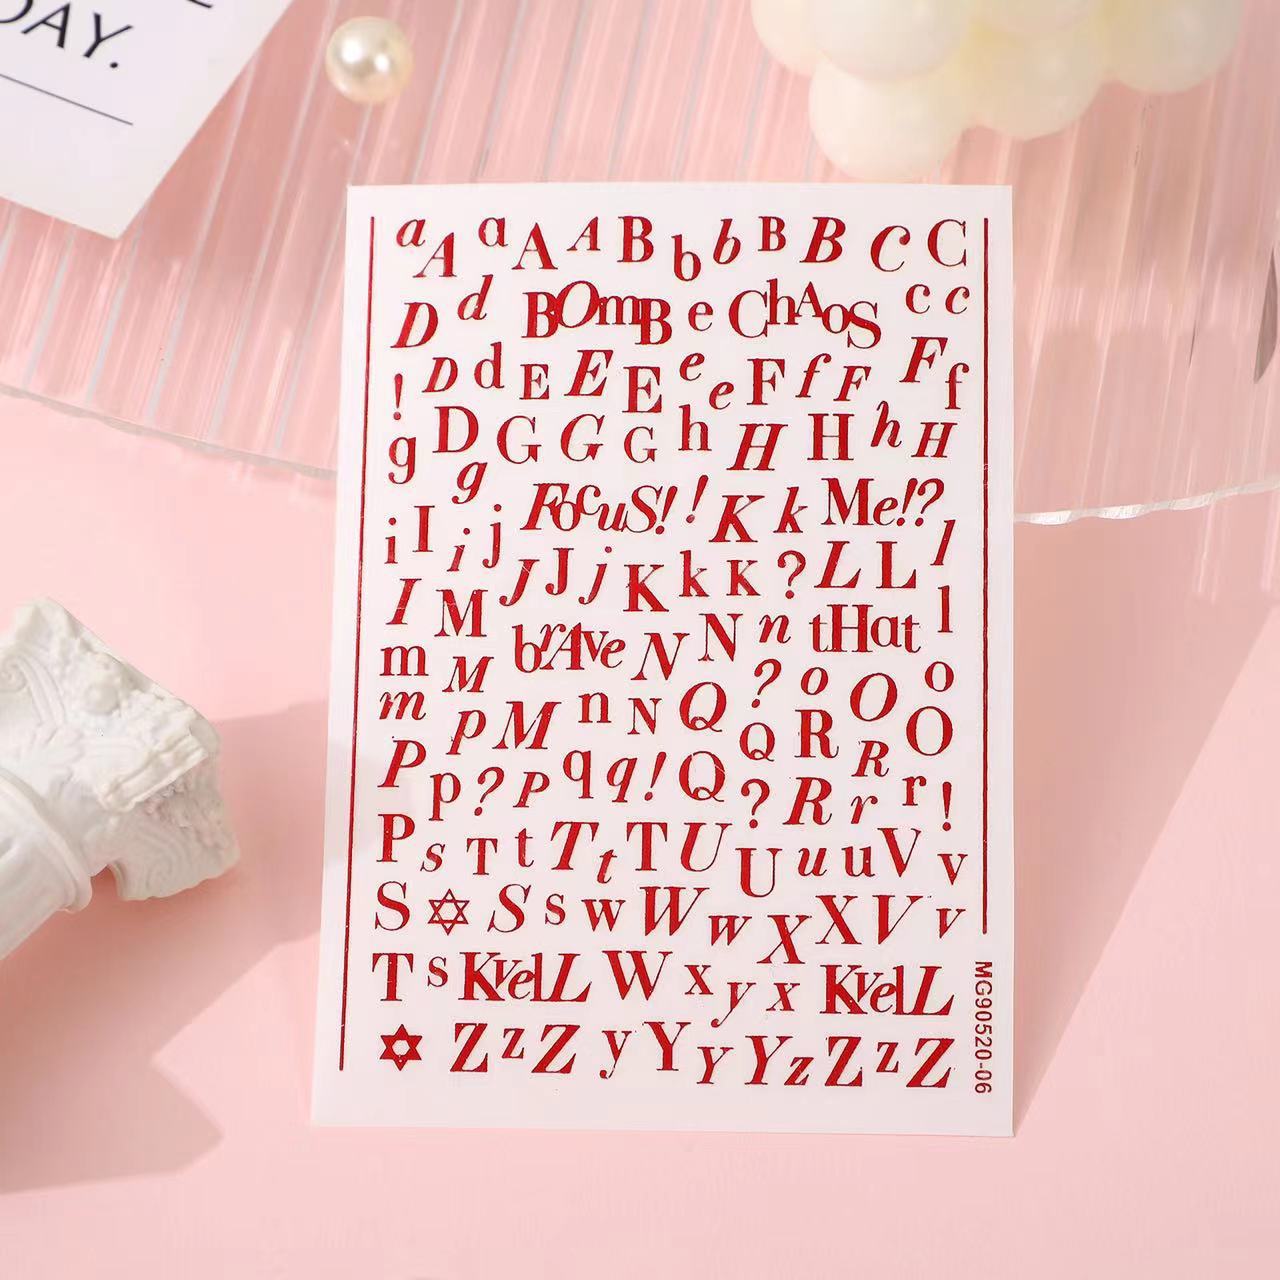 DAY.
a A a A A B b b B B C C
D d BOmB e ChAoS c c
! D d E E E e e F f F F f
g D G G G h H H h H
g FocuS! ! K k Me!? l
i I i j J J j K k K ? L L
I M brAve N N n tHat l
m M ? o O o
m p M n N Q Q R R O
P p ? P q q ! Q ? R r r !
P s T t T t T U U u u V v
S S s w W w X X V v
T s KvelL W x y x KvelL
Z z Z y Y Y Y z Z z Z
MG90520-06